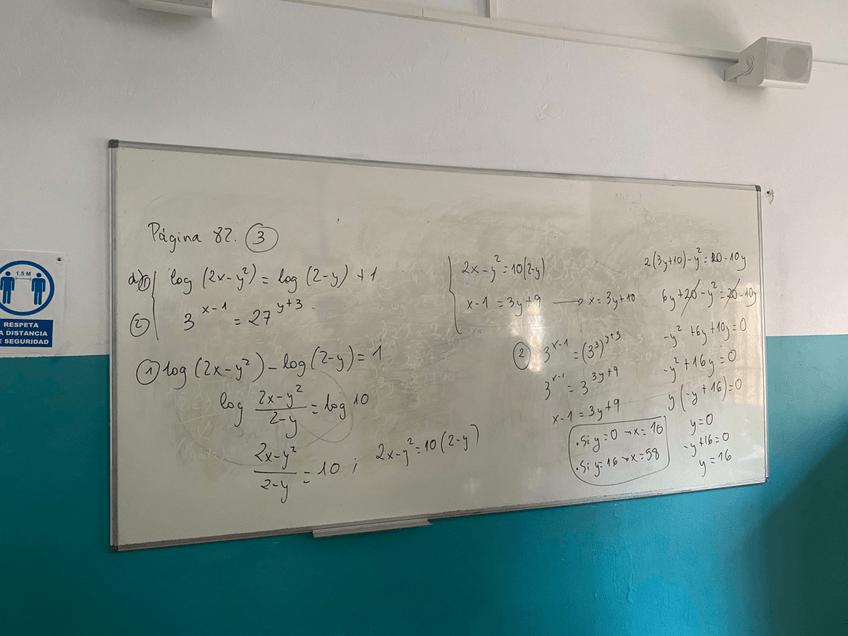 Página 82. ③
a) ① log (2x-y²) = log (2-y) + 1
② 3^(x-1) = 27^(y+3)
① log (2x-y²) - log (2-y) = 1
log (2x-y²)/(2-y) = log 10
(2x-y²)/(2-y) = 10 ; 2x-y² = 10 (2-y)
2x-y² = 10(2-y)
x-1 = 3y+9 → x = 3y+10
② 3^(x-1) = (3³)^(y+3)
3^(x-1) = 3^(3y+9)
x-1 = 3y+9
· Si y=0 → x=10
· Si y=16 → x=58
2(3y+10) - y² = 20-10y
6y+20-y² = 20-10y
-y²+6y+10y=0
-y²+16y=0
y(-y+16)=0
y=0
-y+16=0
y=16
1,5 M
RESPETA
LA DISTANCIA
DE SEGURIDAD